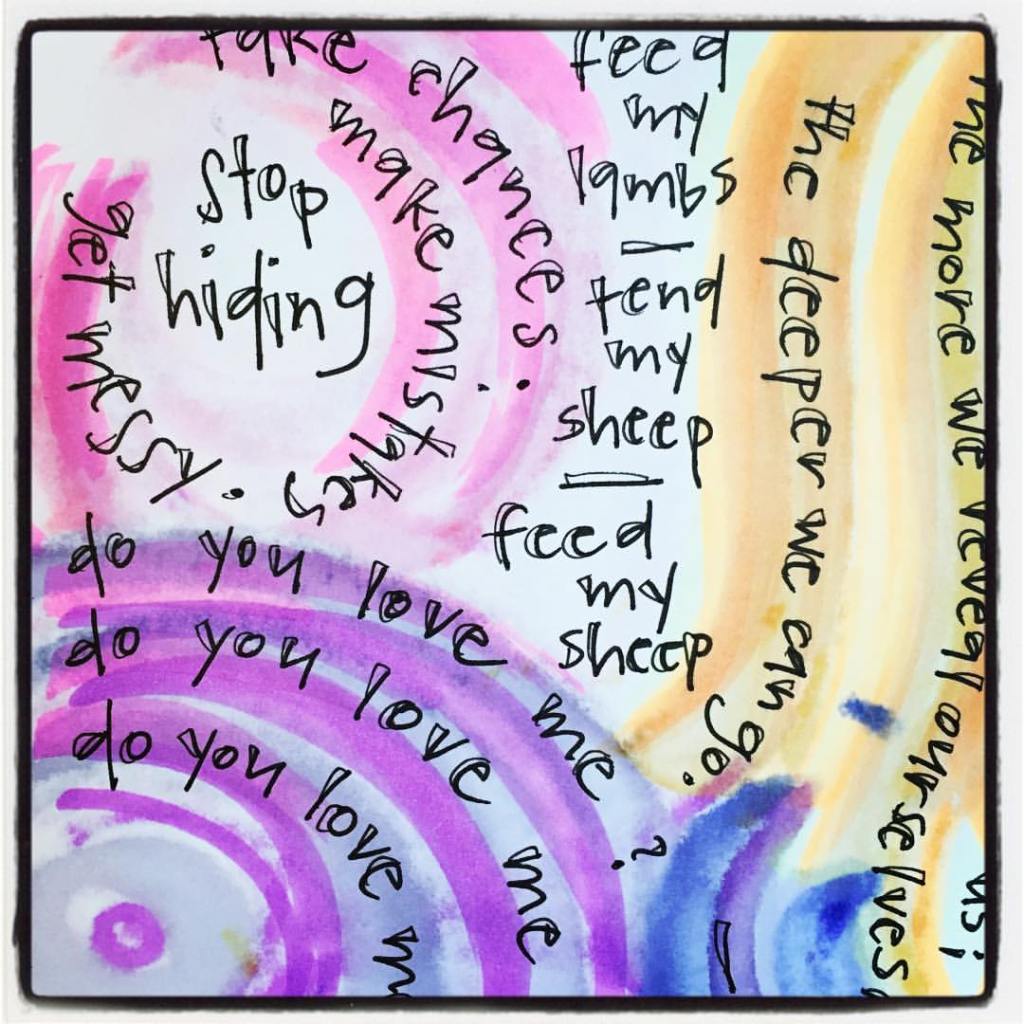 take chances.
make mistakes
get messy.
stop
hiding
feed
my
lambs
tend
my
sheep
feed
my
sheep
do you love me?
do you love me
do you love m
the more we reveal ourselves
the deeper we can go.
us;